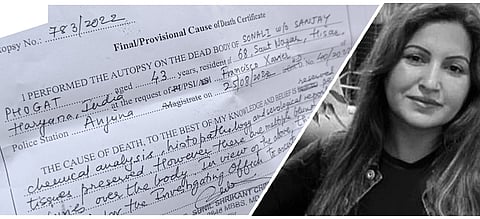 opsy No.: 783/2022
Final/Provisional Cause of Death Certificate
I PERFORMED THE AUTOPSY ON THE DEAD BODY OF SONALI w/o SANJAY
PHOGAT aged 43 years, resident of 68, Sant Nagar, Hisar,
Haryana, India at the request of PI/PSI/ASI Francisco Xavier
Police Station Anjuna Magistrate on 25/08/2022
THE CAUSE OF DEATH, TO THE BEST OF MY KNOWLEDGE AND BELIEF IS reserved
chemical analysis, histopathology and serological
tissues preserved. However there are multiple blunt
over the body. in view of the above,
for the Investigating Officer to
SUNIL SHRIKANT
MBBS, MD